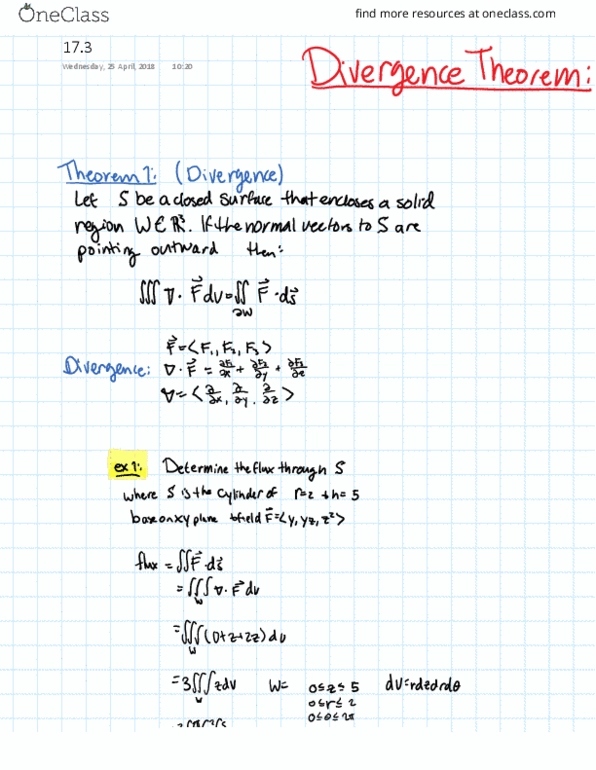 OneClass
find more resources at oneclass.com
17.3
Wednesday, 25 April, 2018 10:20
Divergence Theorem:
Theorem 1: (Divergence)
Let S be a closed surface that encloses a solid
region W ∈ ℝ³. If the normal vectors to S are
pointing outward then:
∭ ∇· F⃗ dV = ∬ F⃗ · ds⃗
∂W
F⃗ = <F₁, F₂, F₃>
Divergence: ∇· F⃗ = ∂F₁/∂x + ∂F₂/∂y + ∂F₃/∂z
∇ = <∂/∂x, ∂/∂y, ∂/∂z>
ex 1: Determine the flux through S
where S is the cylinder of r=2 + h= 5
base on xy plane + field F⃗ = <y, yz, z²>
flux = ∬ F⃗ · ds⃗
= ∭ ∇· F⃗ dv
W
= ∭ (0+z+2z) dv
W
= 3∭ z dv W= 0≤z≤5 dV=rdzdrdθ
W 0≤r≤2
0≤θ≤2π